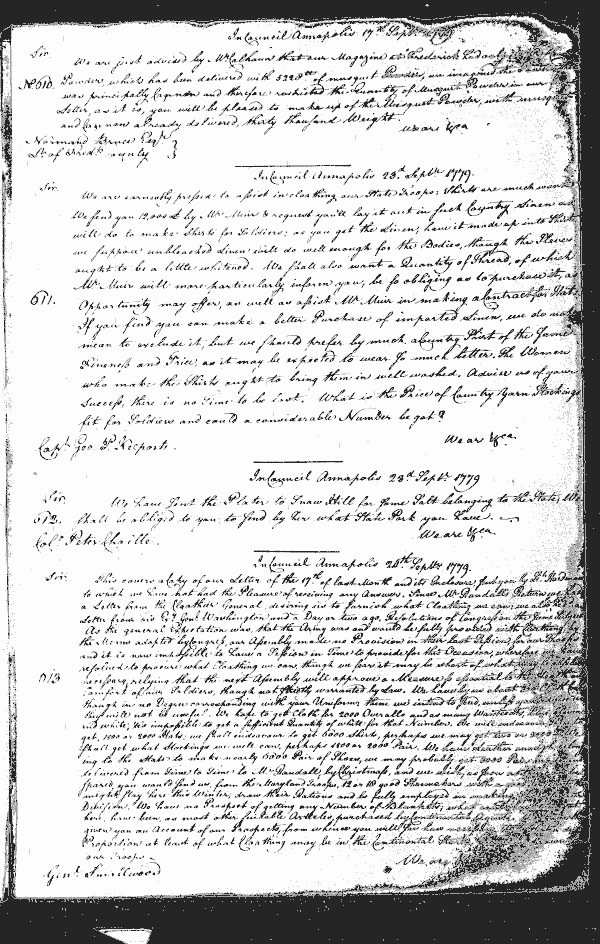 In Council Annapolis 17th Sept. 1779
Sir.
We are just advised by Mr Calhoun that our Magazine at Frederick
No 610. Powder, which has been delivered with 5228 lb of musquet Powder, we imagined the
was principally Cannon and therefore restricted the Quantity of Musquet Powder in our
Letter, as it is, you will be pleased to make up of the Musquet Powder, with
and Cannon already delivered, thirty thousand Weight.
We are &ca
Normand Bruce Esqr.
Lt. of Fredk. County
In Council Annapolis 23d Septr. 1779.
Sir.
We are earnestly pressed to assist in cloathing our State Troops; Shirts are much want
We send you 12,000 £ by Mr Muir & request you'll lay it out in such Country Linen as
will do to make Shirts for Soldiers; as you get the Linen, have it made up into Shirts
we suppose unbleached Linen will do well enough for the Bodies, though the Sleeves
ought to be a little whitened. We shall also want a Quantity of Thread, of which
Mr. Muir will more particularly inform you, be so obliging as to purchase it, as
611. Opportunity may offer, as well as assist Mr Muir in making a Contract for
If you find you can make a better Purchase of imported Linen, we do not
mean to exclude it, but we should prefer by much a Country Shirt of the same
Fineness and Price, as it may be expected to wear so much better. The Women
who make the Shirts ought to bring them in well washed. Advise us of your
Success, there is no Time to be lost. What is the Price of Country Yarn Stockings
fit for Soldiers and could a considerable Number be got?
We are &ca.
Capt. Geo. P. Keeports.
In Council Annapolis 23d Septr. 1779
Sir.
We have sent the Plater to Snow Hill for some Salt belonging to the State; We
612. shall be obliged to you, to send by her what State Pork you have.
We are &ca
Colo. Peter Chaille.
In Council Annapolis 24th Septr. 1779.
Sir.
This covers a Copy of our Letter of the 17th of last Month and its Inclosure sent you by
to which we have not had the Pleasure of receiving any Answer. Since Mr Randall's Return we
a Letter from the Cloathier General desiring us to furnish what Cloathing we can; we also
Letter from his Exy Genl. Washington and a Day or two ago, Resolutions of Congress on the same
As the general Expectation was, that the Army was and would be fully supplied with Cloathing
the Means adopted by Congress, our Assembly made no Provision in their last Session, for our
and it is now impossible to have a Session in Time to provide for this Occasion, wherefore we
resolved to procure what Cloathing we can, though we fear it may be short of what
613 necessary, relying that the next Assembly will approve a Measure so essential to the
Comfort of our Soldiers, though not strictly warranted by Law. We have by us about
though in no Degree corresponding with your Uniform; them we intend to send, unless
they will not be useful. We hope to get Cloth for 2000 Overalls and as many Waistcoats,
and white, tis impossible to get a sufficient Quantity of white for that Number.
get, 1500 or 2000 Hats, we shall endeavour to get 6000 Shirts, perhaps we may get two or
shall get what Stockings we well can, perhaps 1500 or 2000 Pair. We have Leather enough
ing to the State to make nearly 6000 Pair of Shoes, we may probably get 3000 Pair
delivered from Time to Time to Mr Randall, by Christmass, and we
spared you would send us, from the Maryland Troops, 12 or 18 good Shoemakers with a
might stay here this Winter; draw their Rations and be fully employed in making
Division. We have no Prospect of getting any Number of Blankets, what
here, have been, as most other suitable Articles, purchased by Continental
given you an Account of our Prospects, from whence you will see how necessary
Proportion at least of what Cloathing may be in the Continental
our Troops.
We are
Genl. Smallwood